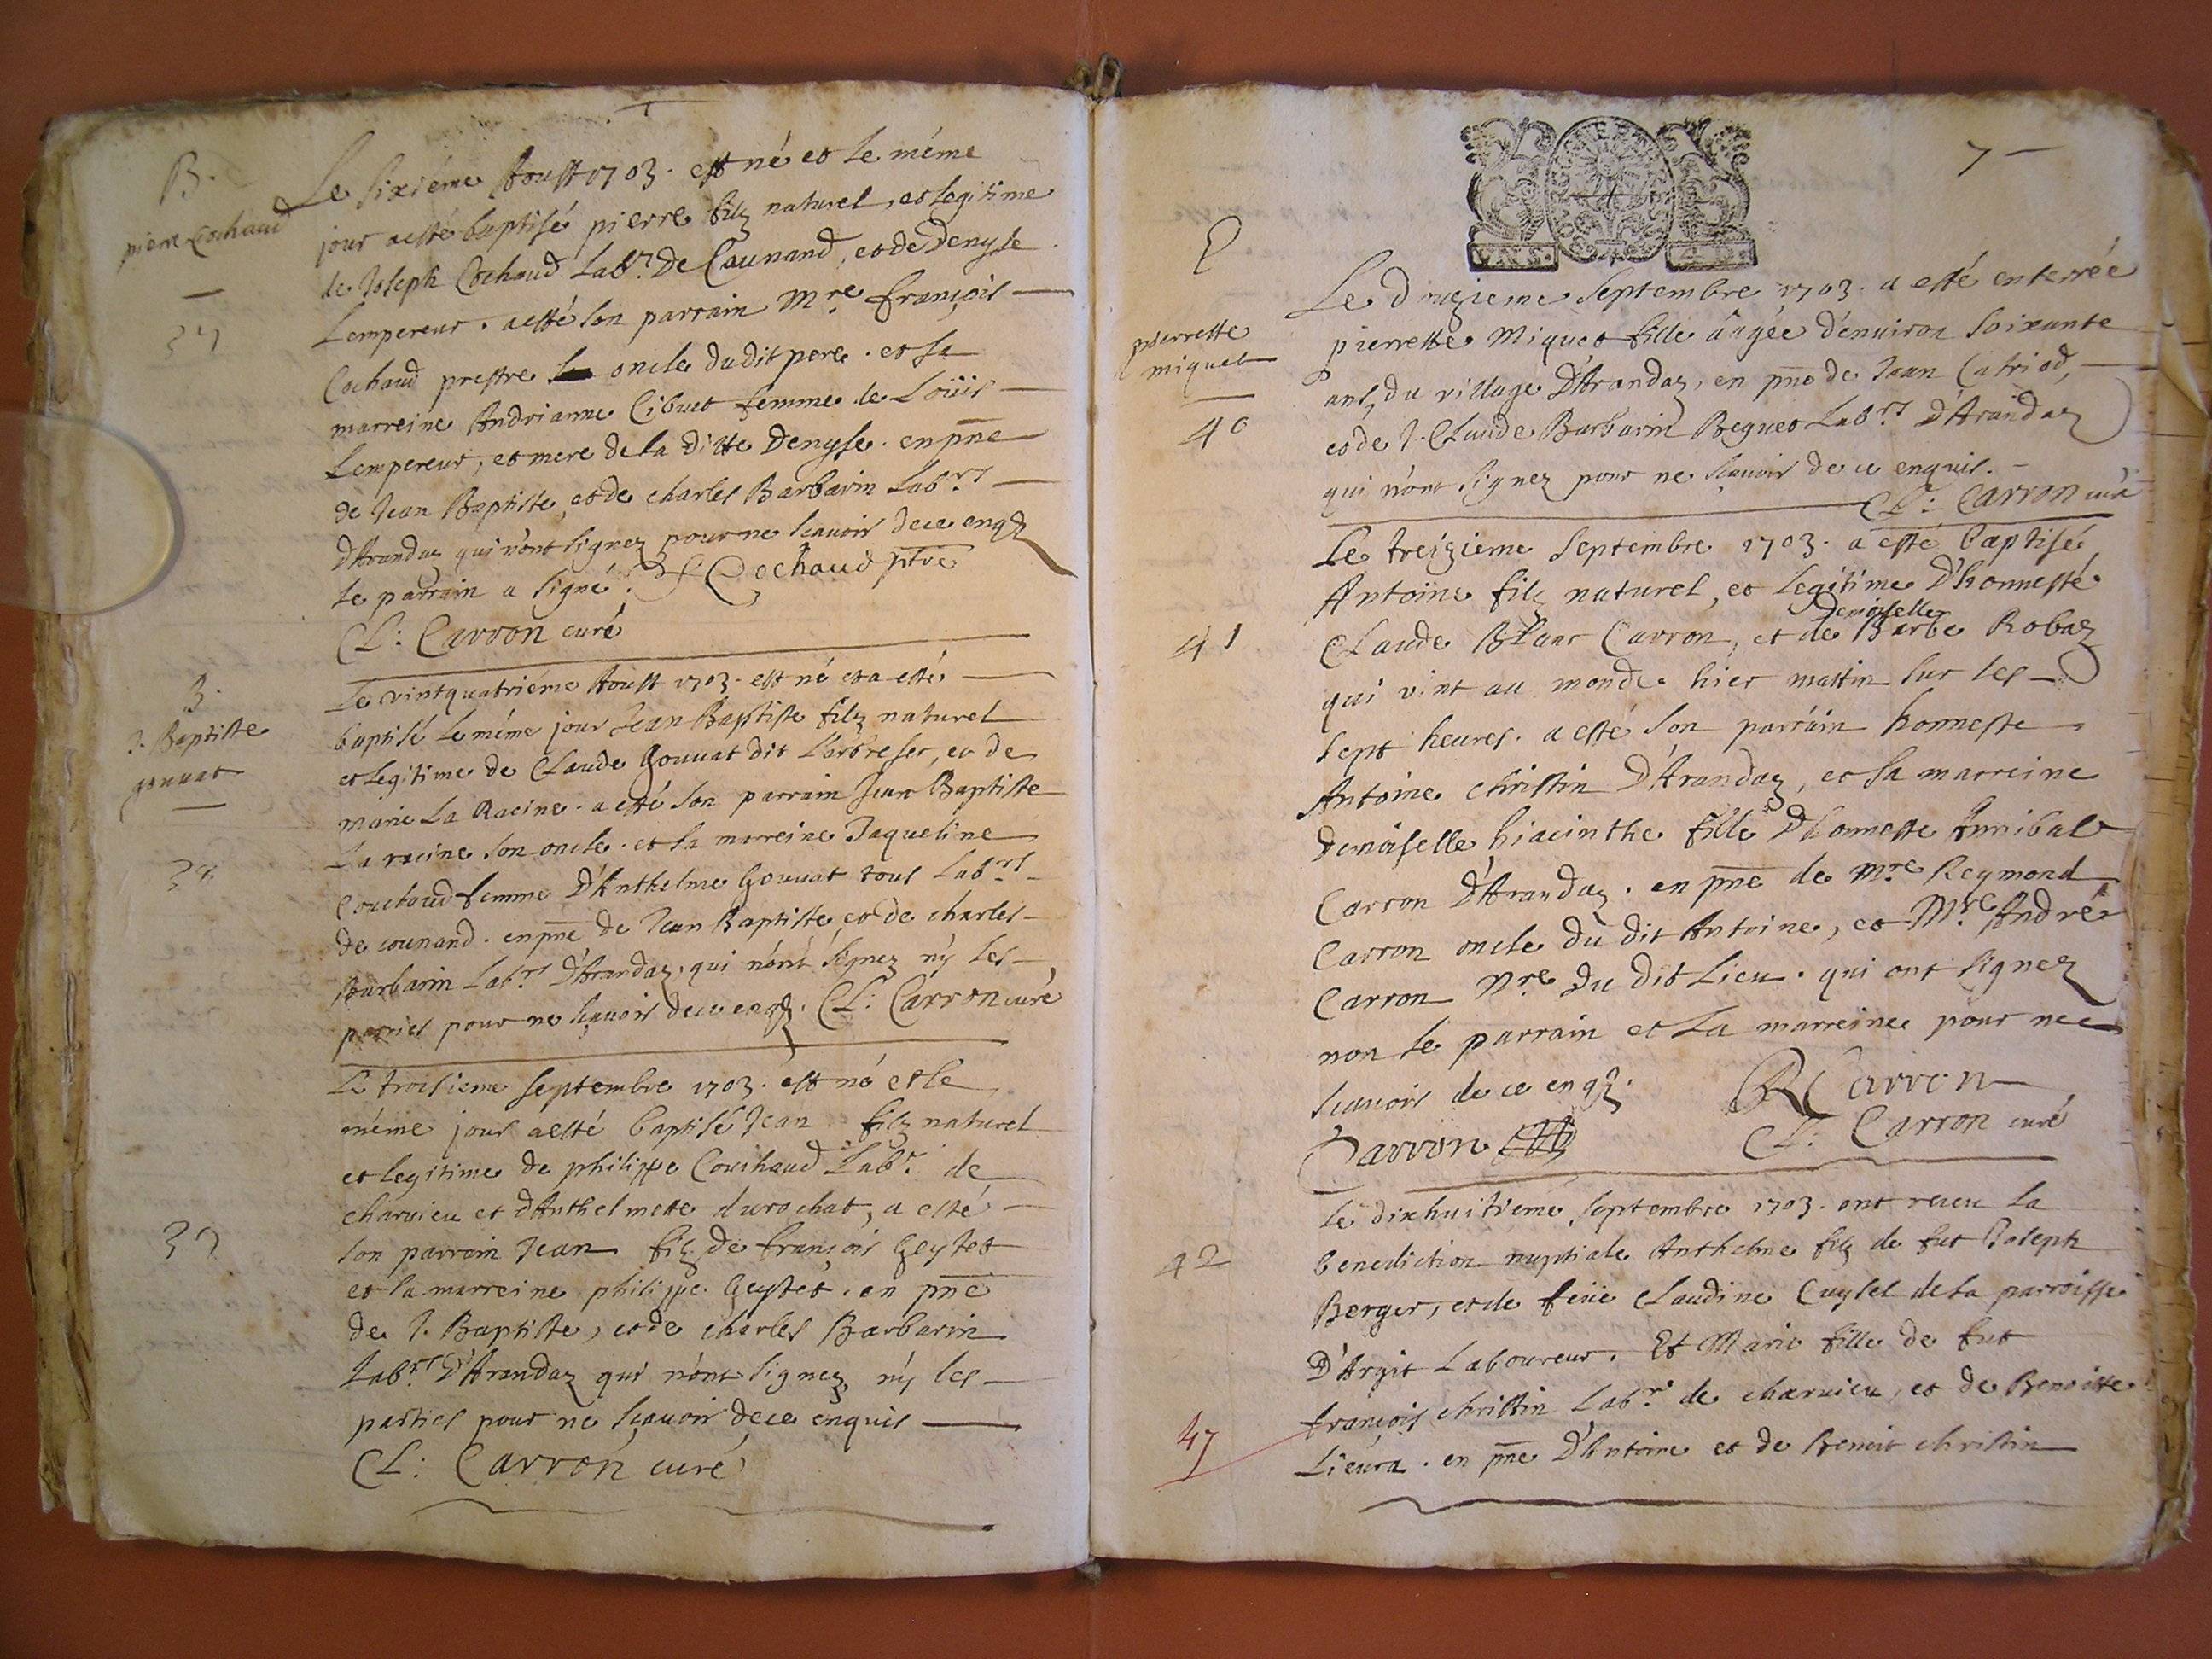 B.
pierre Cochaud
37
Le sixiéme Aoust 1703. est né et le méme
jour aesté baptisé pierre filz naturel, et legitime
de Joseph Cochaud Labr. De Caunand, et de Denyse
Lempereur. aesté son parrain Mre. françois
Cochaud prestre oncle dudit pere. et sa
marreine Andrianne Cibuet femme de Loüis
Lempereur, et mere de la ditte Denyse. en pne
de Jean Baptiste, et de charles Barbarin Labrs
d'Arandaz qui n'ont signez pour ne scauoir de ce enqz
le parrain a signé. Cochaud ptre
CL: Carron curé
B.
J. Baptiste
gouuat
38
Le vintquatriéme Aoust 1703. est né et a esté
baptisé le méme jour Jean Baptiste filz naturel
et legitime de Claude Gouuat dit Larbreser, et de
marie La Racine. a esté son parrain Jean Baptiste
La racine son oncle. et sa marreine Jaqueline
Couchoud femme D'Anthelme Gouuat tous Labrs
de counand. en pne de Jean Baptiste, et de charles
Barbarin Labrs D'Arandaz, qui n'ont signez ny les
parties pour ne scauoir de ce enqz. CL: Carron curé
39
Le troisieme septembre 1703. est né et le
méme jour aesté baptisé Jean filz naturel
et legitime de philippe Couchaud Labr. de
charuieu et d'Anthelmette durochat, a esté
son parrain Jean filz de françois Geyset
et sa marreine philippe Geyset. en pne
de J. Baptiste, et de charles Barbarin
Labrs d'Arandaz qui n'ont signez, ny les
parties pour ne scauoir de ce enquis
CL: Carron curé
7
pierrette
miquet
40
Le septembre 1703. a esté enterrée
pierrette Miquet fille âagée d'enuiron soixante
ans, du village D'Arandaz, en pne de Jean Catriod,
et de J. Claude Barbarin Beguet Labrs D'Arandaz
qui n'ont signez pour ne scauoir de ce enquis.
CL: Carron curé
41
Le treizieme septembre 1703. a esté baptisé
Antoine filz naturel, et legitime D'honnesté
Demoiselle
Claude Blanc Carron, et de Barbe Robaz
qui vint au monde hier mattin sur les
sept heures. a esté son parrain honneste
Antoine christin D'Arandaz, et sa marreine
demoiselle hiacinthe fille D'honneste Annibal
Carron D'Arandaz. en pne de Mre Reymond
Carron oncle du dit Antoine, et Mre. André
Carron Nre du dit Lieu. qui ont signez
non le parrain et la marreine pour ne
scauoir de ce enqz.
R Carron
Carron
CL: Carron curé
42
Le dixhuitieme septembre 1703. ont receu la
benediction nuptiale Anthelme filz de fut Joseph
Berger, et de feüe Claudine Cuysel de la parroisse
D'Argit Laboureur. Et Marie fille de fut
47
françois christin Labr. de charuieu, et de Benoitte
Lieura. en pne D'Antoine et de Benoit christin